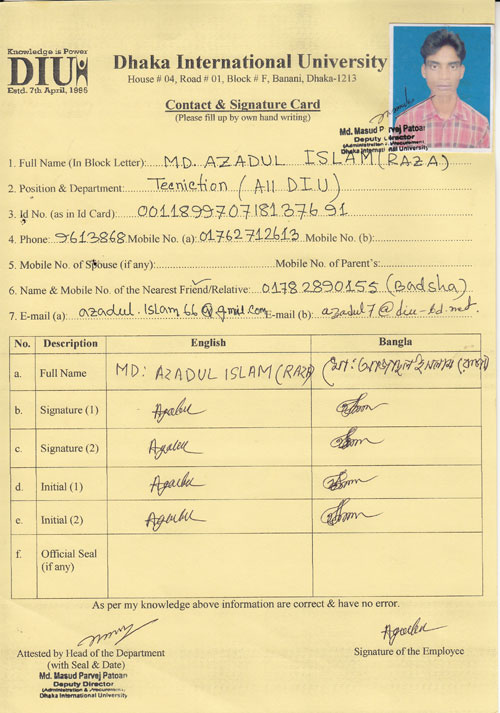 Knowledge is Power
DIU
Estd. 7th April, 1995
Dhaka International University
House # 04, Road # 01, Block # F, Banani, Dhaka-1213
Contact & Signature Card
(Please fill up by own hand writing)
Md. Masud Parvej Patoari
Deputy Director
(Administration & Procurement)
Dhaka International University
1. Full Name (In Block Letter): MD. AZADUL ISLAM (RAZA)
2. Position & Department: Tecniction (All DIU)
3. Id No. (as in Id Card): 001189970718137691
4. Phone: 9613868 Mobile No. (a): 01762712613 Mobile No. (b):
5. Mobile No. of Spouse (if any): Mobile No. of Parent's:
6. Name & Mobile No. of the Nearest Friend/Relative: 01782890155 (Badsha)
7. E-mail (a): azadul.islam66@gmil.com E-mail (b): azadul7@diu-bd.net.
No. Description English Bangla
a. Full Name MD: AZADUL ISLAM (RAZA) মো: আজাদুল ইসলাম (রাজা)
b. Signature (1) Azadul
c. Signature (2) Azadul
d. Initial (1) Azadul
e. Initial (2) Azadul
f. Official Seal
(if any)
As per my knowledge above information are correct & have no error.
Azadul
Attested by Head of the Department Signature of the Employee
(with Seal & Date)
Md. Masud Parvej Patoari
Deputy Director
(Administration & Procurement)
Dhaka International University